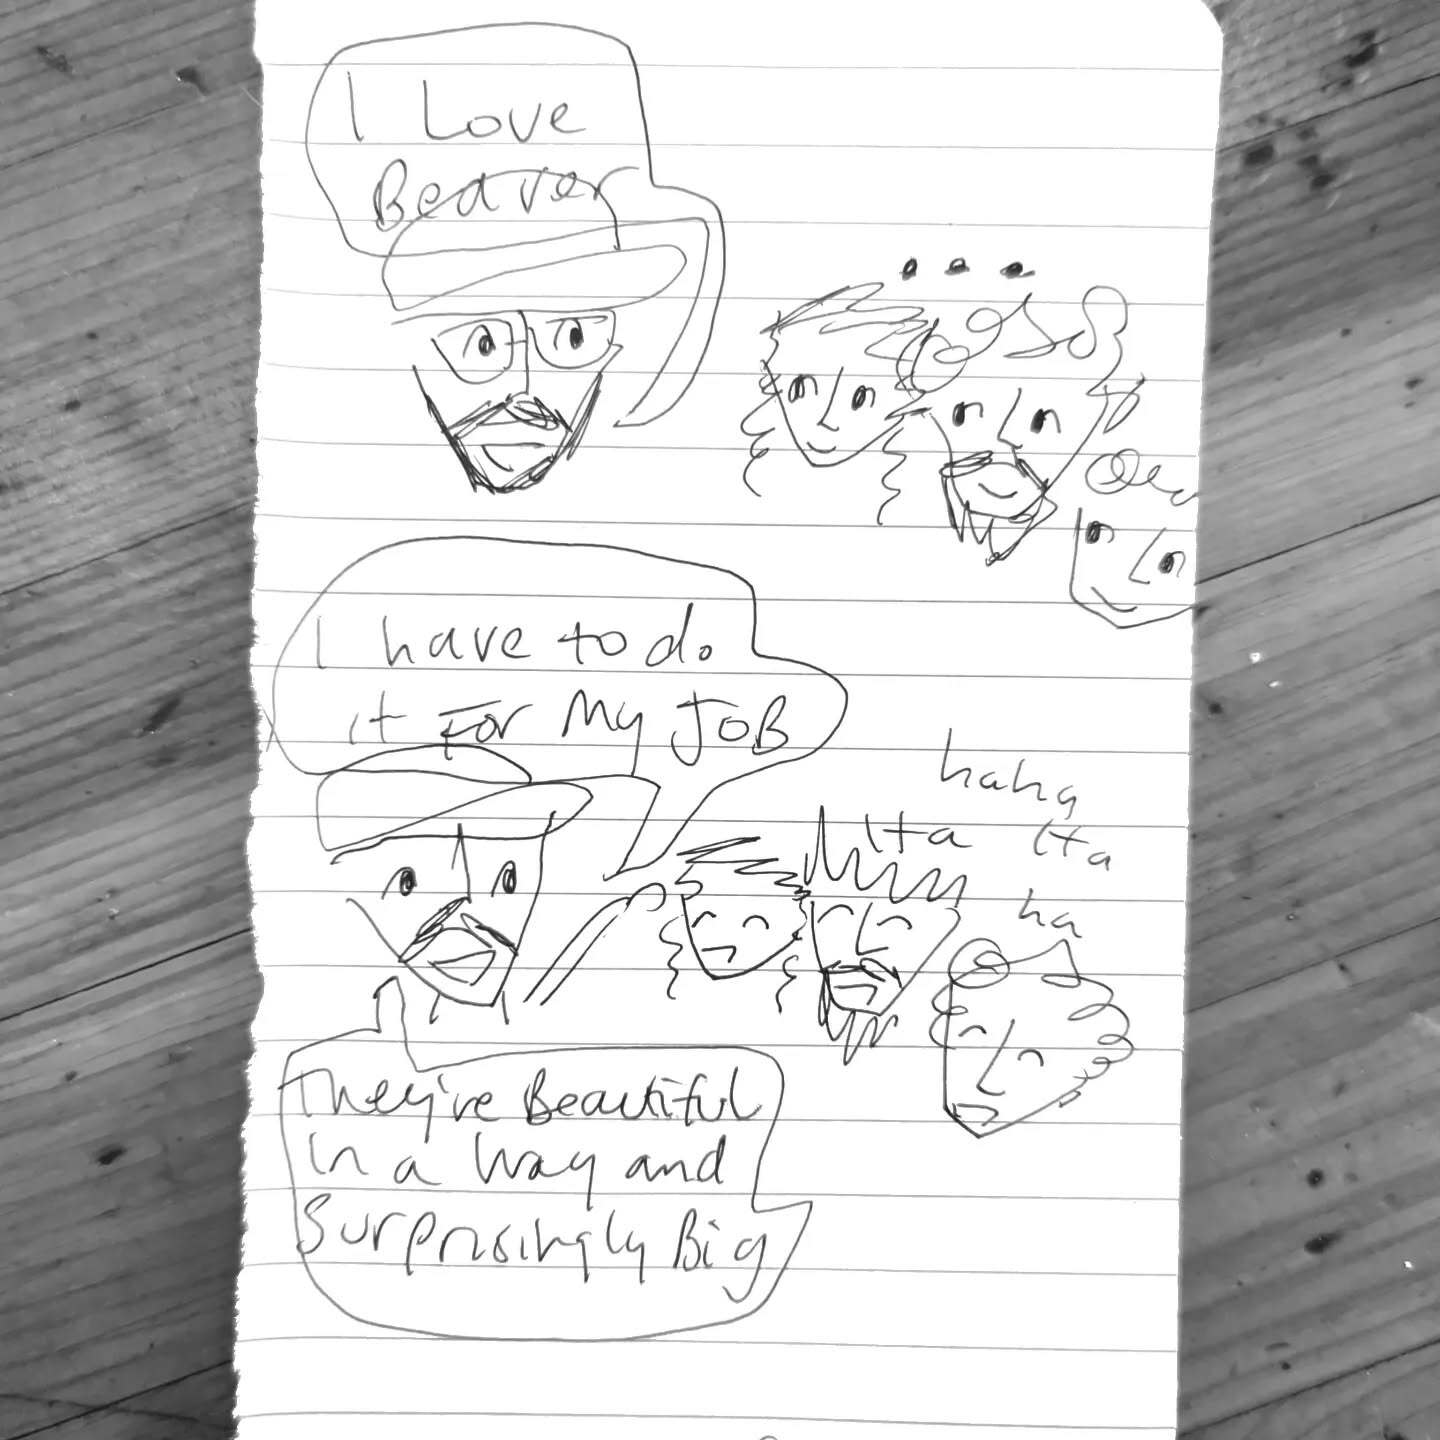 I Love
Beaver
...
I have to do.
it For My JOB
haha
Ha Ha
ha
They're Beautiful
In a Way and
Surprisingly Big